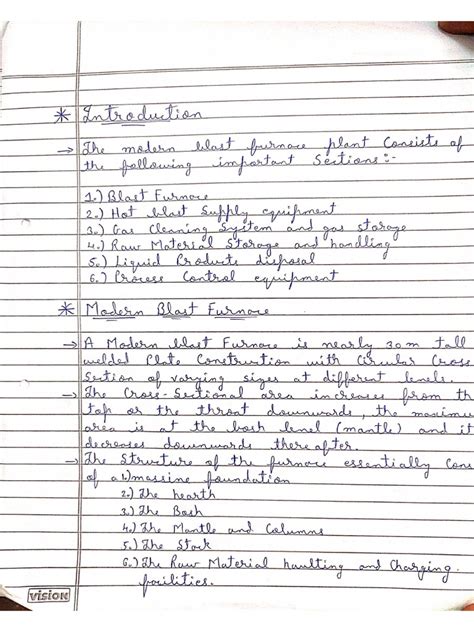 * Introduction
→ The modern blast furnace plant consists of
the following important Sections :-
1.) Blast Furnace
2.) Hot blast Supply equipment
3.) Gas Cleaning System and gas storage
4.) Raw Material Storage and handling
5.) Liquid Products disposal
6.) Process Control equipment
* Modern Blast Furnace
→ A Modern blast Furnace is nearly 30m tall
welded Plate Construction with Circular Cross
Section of varying sizes at different levels.
→ The Cross-Sectional area increases from th
top or the throat downwards, the maximu
area is at the bosh level (mantle) and it
decreases downwards there after.
→ The Structure of the furnace essentially Cons
of a massine foundation
2.) The hearth
3.) The Bosh
4.) The Mantle and Columns
5.) The Stack
6.) The Raw Material haulting and Charging
facilities.
vision